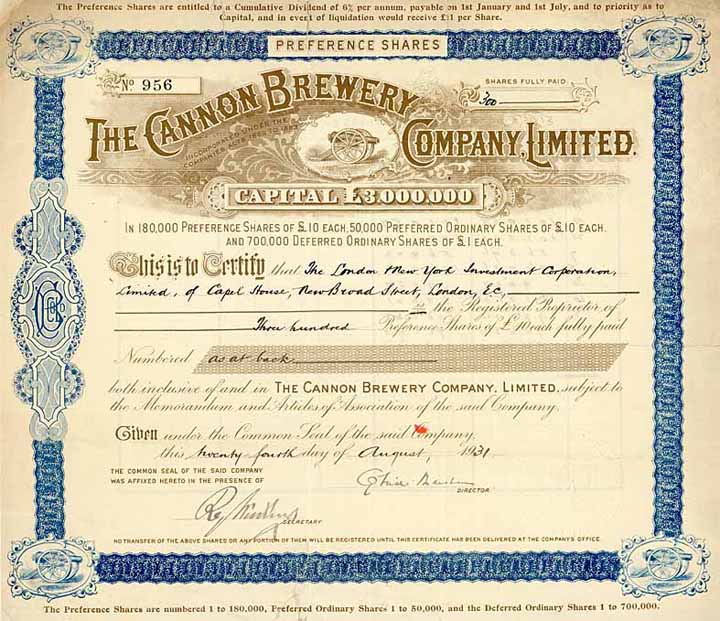 The Preference Shares are entitled to a Cumulative Dividend of 6% per annum, payable on 1st January and 1st July, and to priority as to
Capital, and in event of liquidation would receive £11 per Share.
PREFERENCE SHARES
No 956
SHARES FULLY PAID
300
THE CANNON BREWERY
COMPANY, LIMITED.
INCORPORATED UNDER THE
COMPANIES ACTS 1862 TO 1893
CAPITAL £3,000,000
IN 180,000 PREFERENCE SHARES OF £10 EACH, 50,000 PREFERRED ORDINARY SHARES OF £10 EACH.
AND 700,000 DEFERRED ORDINARY SHARES OF £1 EACH.
This is to Certify that The London & New York Investment Corporation,
Limited, of Capel House, New Broad Street, London, E.C,
is the Registered Proprietor of
Three hundred Preference Shares of £10 each fully paid
Numbered as at back
both inclusive of and in THE CANNON BREWERY COMPANY, LIMITED, subject to
the Memorandum and Articles of Association of the said Company.
Given under the Common Seal of the said Company,
this twenty fourth day of August, 1931
THE COMMON SEAL OF THE SAID COMPANY
WAS AFFIXED HERETO IN THE PRESENCE OF
DIRECTOR
SECRETARY
NO TRANSFER OF THE ABOVE SHARES OR ANY PORTION OF THEM WILL BE REGISTERED UNTIL THIS CERTIFICATE HAS BEEN DELIVERED AT THE COMPANY'S OFFICE.
The Preference Shares are numbered 1 to 180,000, Preferred Ordinary Shares 1 to 50,000, and the Deferred Ordinary Shares 1 to 700,000.